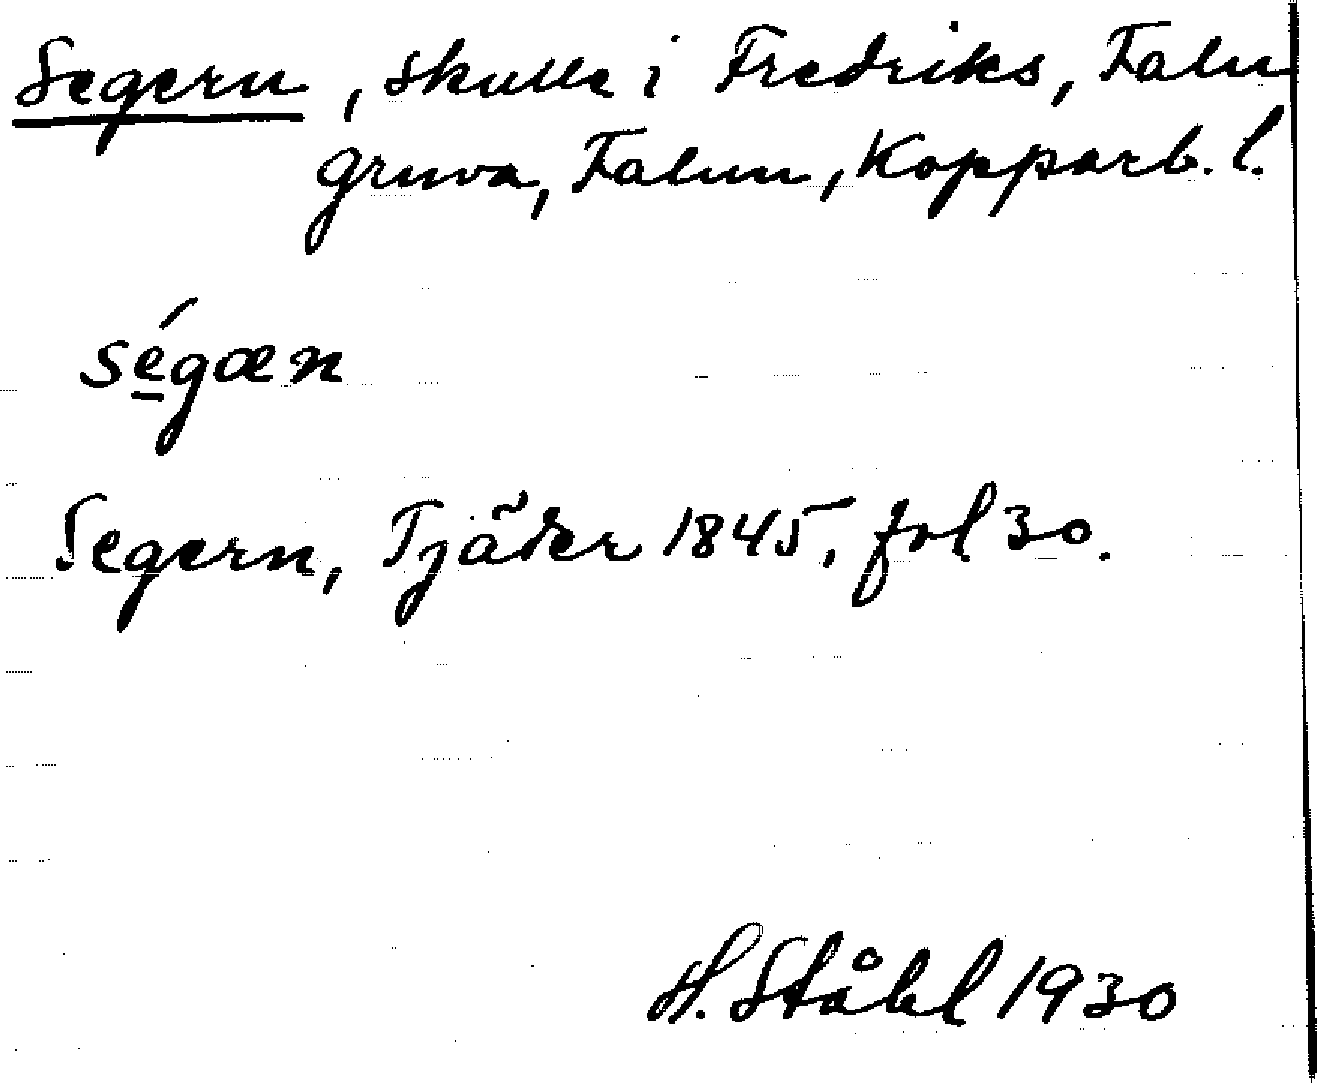 Segern, skulle i Fredriks, Falu
gruva, Falun, Kopparb. l.
ségæn
Segern, Tjäder 1845, fol 30.
H. Ståhl 1930